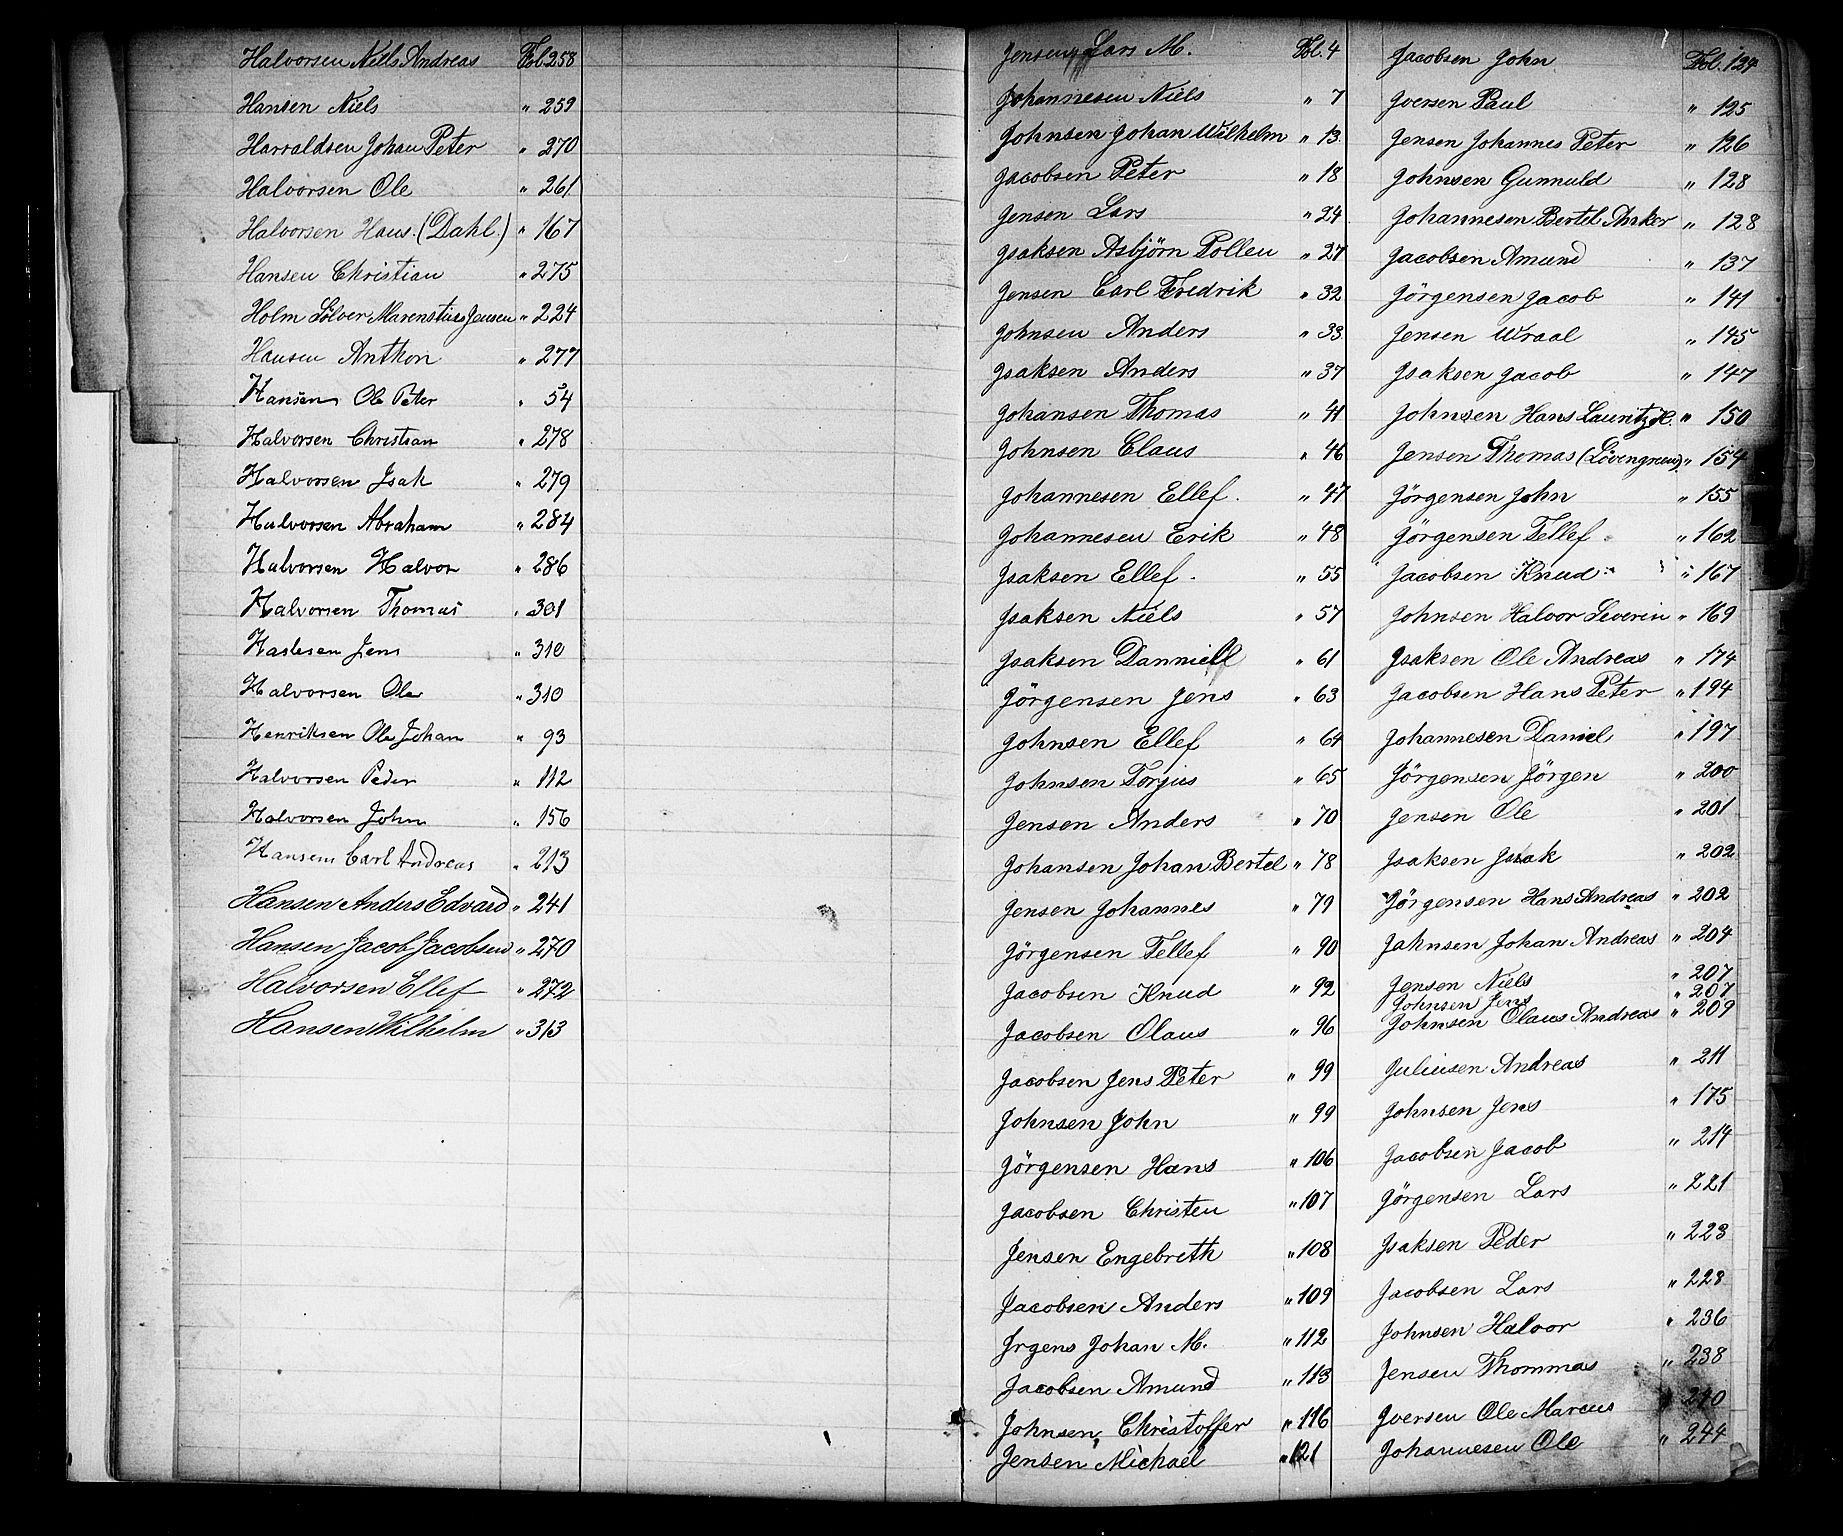 Halvorsen Niels Andreas Fol. 258
Hansen Niels " 259
Harraldsen Johan Peter " 270
Halvorsen Ole " 261
Halvorsen Hans. (Dahl.) " 167
Hansen Christian " 275
Holm Sölver Marenstius Jensen " 224
Hansen Anthon " 277
Hansen Ole Peter " 54
Halvorsen Christian " 278
Halvorsen Isak " 279
Halvorsen Abraham " 284
Halvorsen Halvor " 286
Halvorsen Thomas " 301
Haslesen Jens " 310
Halvorsen Ole " 310
Henriksen Ole Johan " 93
Halvorsen Peder " 112
Halvorsen John " 156
Hansen Carl Andreas " 213
Hansen Anders Edvard " 241
Hansen Jacob Jacobsen " 270
Halvorsen Ellef " 272
Hansen Wilhelm " 313
Jensen Lars M. Fol. 4
Johannesen Niels " 7
Johnsen Johan Wilhelm " 13
Jacobsen Peter " 18
Jensen Lars " 24
Isaksen Asbjörn Pollen " 27
Jensen Carl Fredrik " 32
Johnsen Anders " 33
Isaksen Anders " 37
Johansen Thomas " 41
Johnsen Claus " 46
Johannesen Ellef. " 47
Johannesen Erik " 48
Isaksen Ellef. " 55
Isaksen Niels " 57
Isaksen Danniell " 61
Jörgensen Jens " 63
Johnsen Ellef " 64
Johnsen Torjus " 65
Jensen Anders " 70
Johansen Johan Bertel " 78
Jensen Johannes " 79
Jörgensen Tellef " 90
Jacobsen Knud " 92
Jacobsen Olaus " 96
Jacobsen Jens Peter " 99
Johnsen John " 99
Jörgensen Hans " 106
Jacobsen Christen " 107
Jensen Engebreth " 108
Jacobsen Anders " 109
Irgens Johan M. " 112
Jacobsen Amund " 113
Johnsen Christoffer " 116
Jensen Michael " 121
Jacobsen John Fol. 124
Iversen Paul " 125
Jensen Johannes Peter " 126
Johnsen Gunnuld " 128
Johannesen Bertel Anker " 128
Jacobsen Amund " 137
Jörgensen Jacob " 141
Jensen Wraal " 145
Isaksen Jacob " 147
Johnsen Hans Lauritz H. " 150
Jensen Thomas (Lövengreen) " 154
Jörgensen John " 155
Jörgensen Tellef " 162
Jacobsen Knud " 167
Johnsen Halvor Severin " 169
Isaksen Ole Andreas " 174
Jacobsen Hans Peter " 194
Johannesen Daniel " 197
Jörgensen Jörgen " 200
Jensen Ole " 201
Isaksen Isak " 202
Jörgensen Hans Andreas " 202
Jahnsen Johan Andreas " 204
Jensen Niels " 207
Johnsen Jens " 207
Johnsen Olaus Andreas " 209
Juliusen Andreas " 211
Johnsen Jens " 175
Jacobsen Jacob " 214
Jörgensen Lars " 221
Isaksen Peder " 223
Jacobsen Lars " 228
Johnsen Halvor " 236
Jensen Thommas " 238
Iversen Ole Marcus " 240
Johannesen Ole " 244